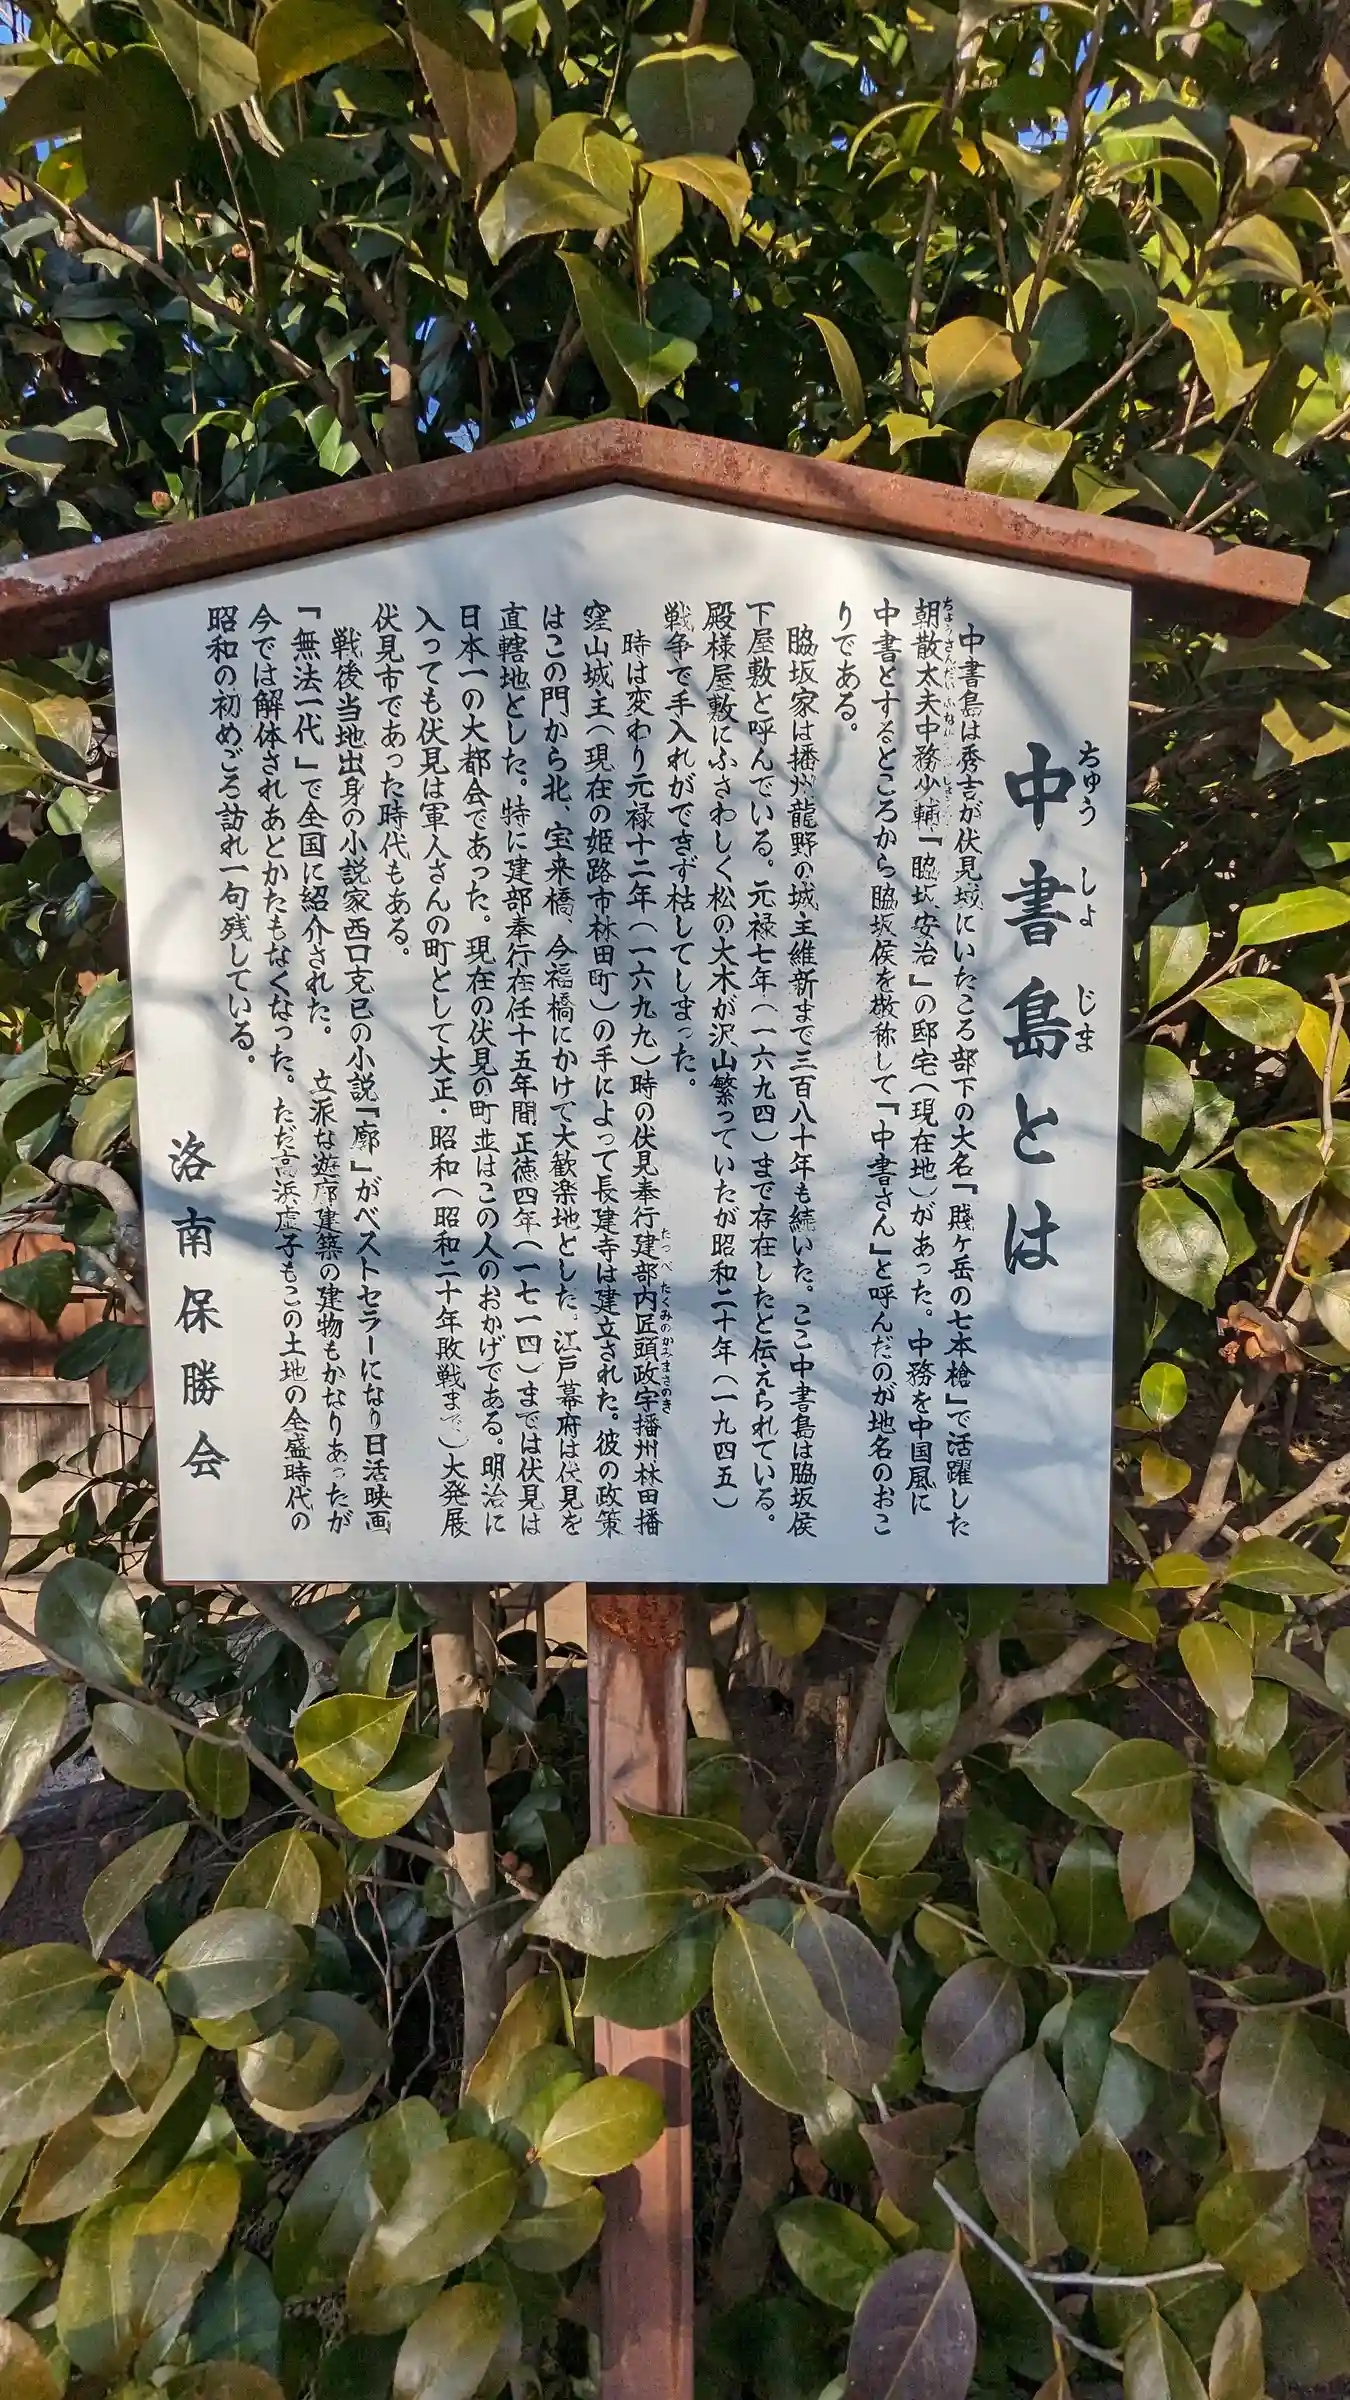 中書島とは
ちゅうしょじま
中書島は秀吉が伏見城にいたころ部下の大名「賤ヶ岳の七本槍」で活躍した
朝散太夫中務少輔「脇坂安治」の邸宅(現在地)があった。中務を中国風に
中書とするところから脇坂侯を敬称して「中書さん」と呼んだのが地名のおこ
りである。
脇坂家は播州龍野の城主維新まで三百八十年も続いた。ここ中書島は脇坂侯
下屋敷と呼んでいる。元禄七年(一六九四)まで存在したと伝えられている。
殿様屋敷にふさわしく松の大木が沢山繁っていたが昭和二十年(一九四五)
戦争で手入れができず枯してしまった。
時は変わり元禄十二年(一六九九)時の伏見奉行建部内匠頭政宇播州林田播
たつべ たくみのかみまさのき
窪山城主(現在の姫路市林田町)の手によって長建寺は建立された。彼の政策
はこの門から北、宝来橋、今福橋にかけて大歓楽地とした。江戸幕府は伏見を
直轄地とした。特に建部奉行在任十五年間正徳四年(一七一四)までは伏見は
日本一の大都会であった。現在の伏見の町並はこの人のおかげである。明治に
入っても伏見は軍人さんの町として大正・昭和(昭和二十年敗戦まで)大発展
伏見市であった時代もある。
戦後当地出身の小説家西口克已の小説「廓」がベストセラーになり日活映画
「無法一代」で全国に紹介された。 立派な遊廓建築の建物もかなりあったが
今では解体されあとかたもなくなった。ただ高浜虚子もこの土地の全盛時代の
昭和の初めごろ訪れ一句残している。
洛南保勝会